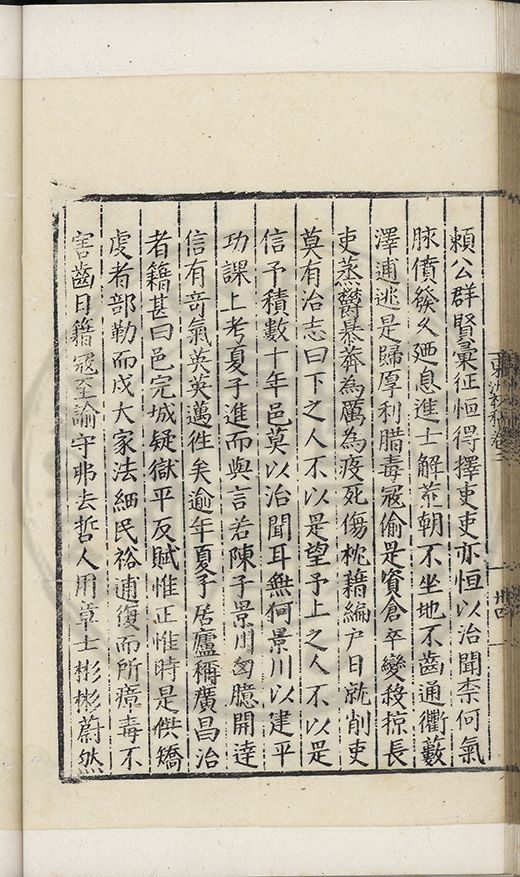 賴公群賢彙征恒得擇吏吏亦恒以治聞柰何氣
脉僨發久廼息進士解荒朝不坐地不齒通衢藪
澤逋逃是歸厚利腊毒寇偷是賓倉卒變移掠長
吏蒸欝暴莽為厲為疫死傷枕籍編戶日就削吏
莫有治志曰下之人不以是望予上之人不以是
信予積數十年邑莫以治聞耳無何景川以建平
功課上考夏子進而與言若陳子景川匈臆開逹
信有奇氣英英邁徃矣逾年夏子居廬稱廣昌治
者籍甚曰邑完城疑獄平反賦惟正惟時是供矯
虔者部勒而戍大家法細民裕逋復而所瘴毒不
害齒日籍寇至諭守弗去哲人用章士彬彬蔚然
卷三
卅四